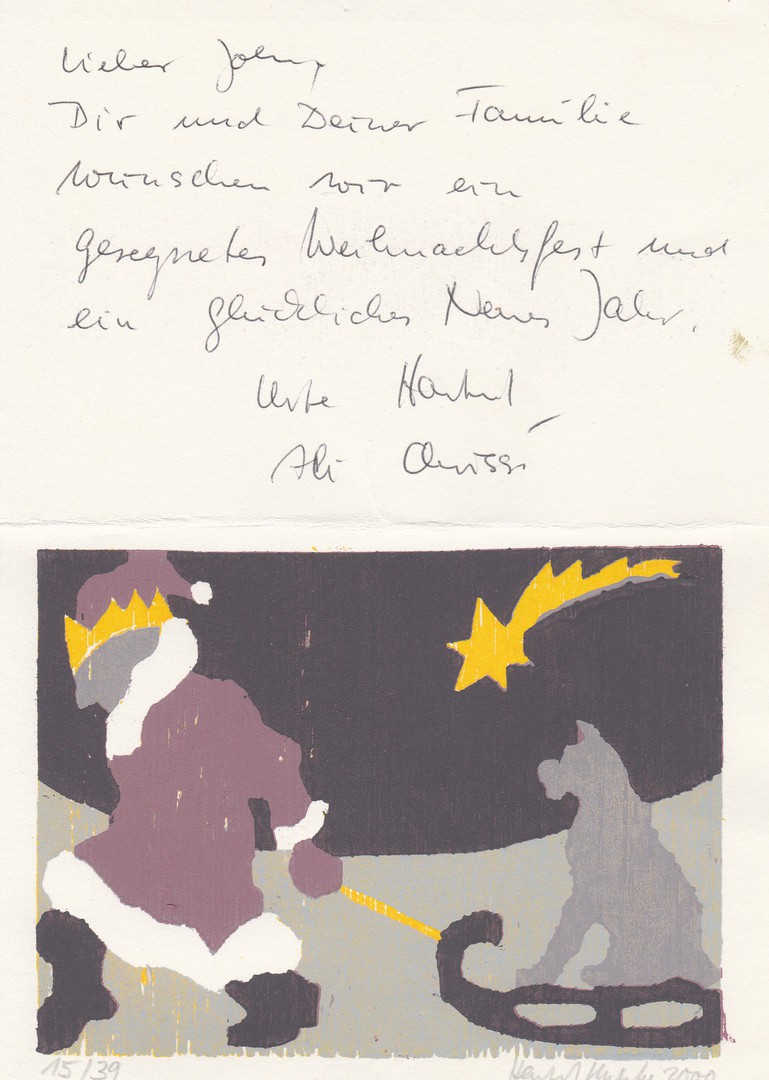 Lieber John,
Dir und Deiner Familie
wünschen wir ein
gesegnetes Weihnachtsfest und
ein glückliches Neues Jahr.
Ali
15/39 2000